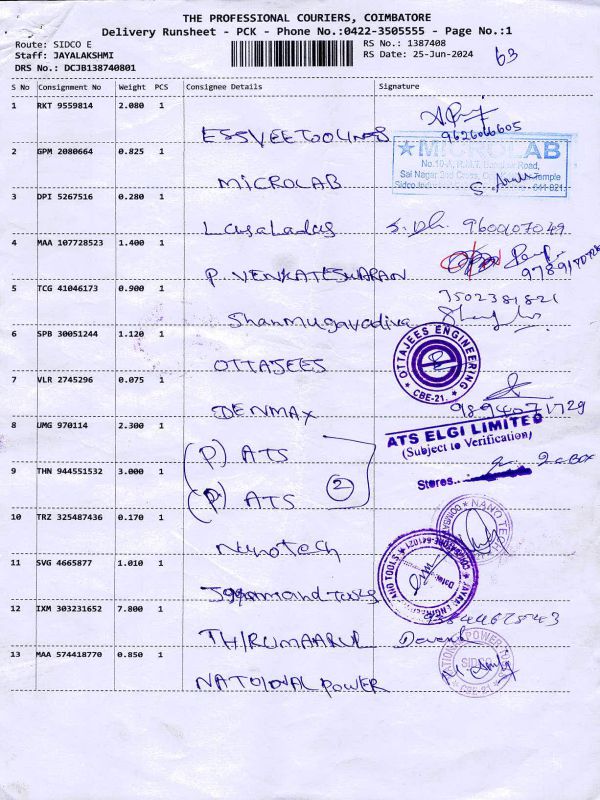 THE PROFESSIONAL COURIERS, COIMBATORE
Delivery Runsheet - PCK - Phone No.:0422-3505555 - Page No.:1
Route: SIDCO E
Staff: JAYALAKSHMI
DRS No.: DCJB138740801
RS No.: 1387408
RS Date: 25-Jun-2024
63
S No Consignment No Weight PCS Consignee Details Signature
1 RKT 9559814 2.080 1
ESSVEE TOOLINGS 9626066605
2 GPM 2080664 0.825 1
MICROLAB
★MICROLAB
No.10-A,
Sai Nagar 2nd Cross,
Temple
Sidco 641 021.
3 DPI 5267516 0.280 1
4 MAA 107728523 1.400 1
P. VENKATESWARAN
5 TCG 41046173 0.900 1
Shanmugavadiva
7502381821
6 SPB 30051244 1.120 1
OTTAJEES
OTTAJEES ENGINEERING
CBE-21.
7 VLR 2745296 0.075 1
DENMAX 9894071729
8 UMG 970114 2.300 1
(P) ATS
ATS ELGI LIMITED
(Subject to Verification)
Stores
9 THN 944551532 3.000 1
(P) ATS
2
10 TRZ 325487436 0.170 1
Nanotech
NANO TECH
11 SVG 4665877 1.010 1
AND TOOLS
12 IXM 303231652 7.800 1
THIRUMAARUL
13 MAA 574418770 0.850 1
NATOIONAL POWER
SIDCO
CBE-21